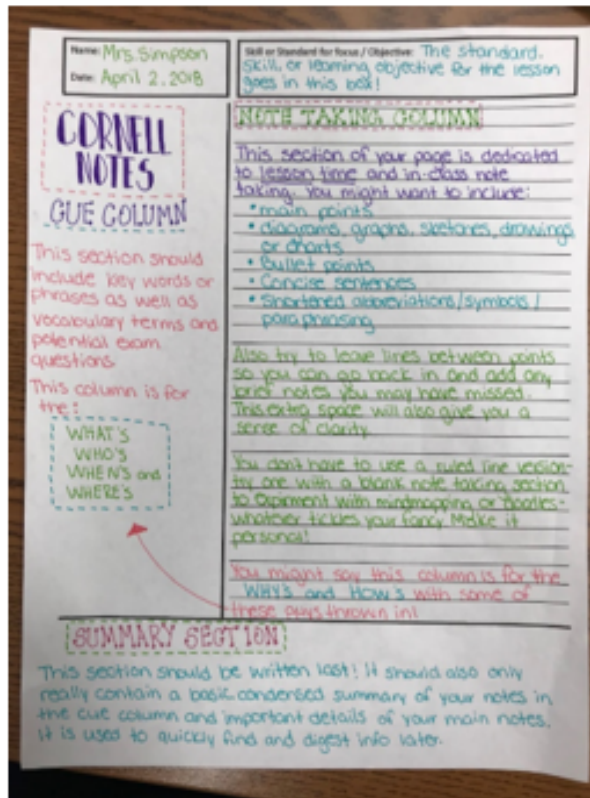 Name: Mrs. Simpson
Date: April 2, 2018
Skill or Standard for focus / Objective: The standard,
skill, or learning objective for the lesson
goes in this box!
CORNELL
NOTES
CUE COLUMN
This section should
include key words or
phrases as well as
vocabulary terms and
potential exam
questions.
This column is for
the:
WHAT'S
WHO'S
WHEN'S and
WHERE'S
NOTE TAKING COLUMN
This section of your page is dedicated
to lesson time and in-class note
taking. You might want to include:
• main points
• diagrams, graphs, sketches, drawings
or charts
• Bullet points
• Concise sentences
• Shortened abbreviations/symbols/
paraphrasing
Also try to leave lines between points
so you can go back in and add any
brief notes you may have missed.
This extra space will also give you a
sense of clarity.
You don't have to use a ruled line version-
try one with a blank note taking section
to expirment with mindmapping or doodles-
whatever tickles your fancy. Make it
personal!
You might say this column is for the
WHY'S and HOW'S with some of
these guys thrown in!
SUMMARY SECTION
This section should be written last! It should also only
really contain a basic condensed summary of your notes in
the cue column and important details of your main notes.
It is used to quickly find and digest info later.